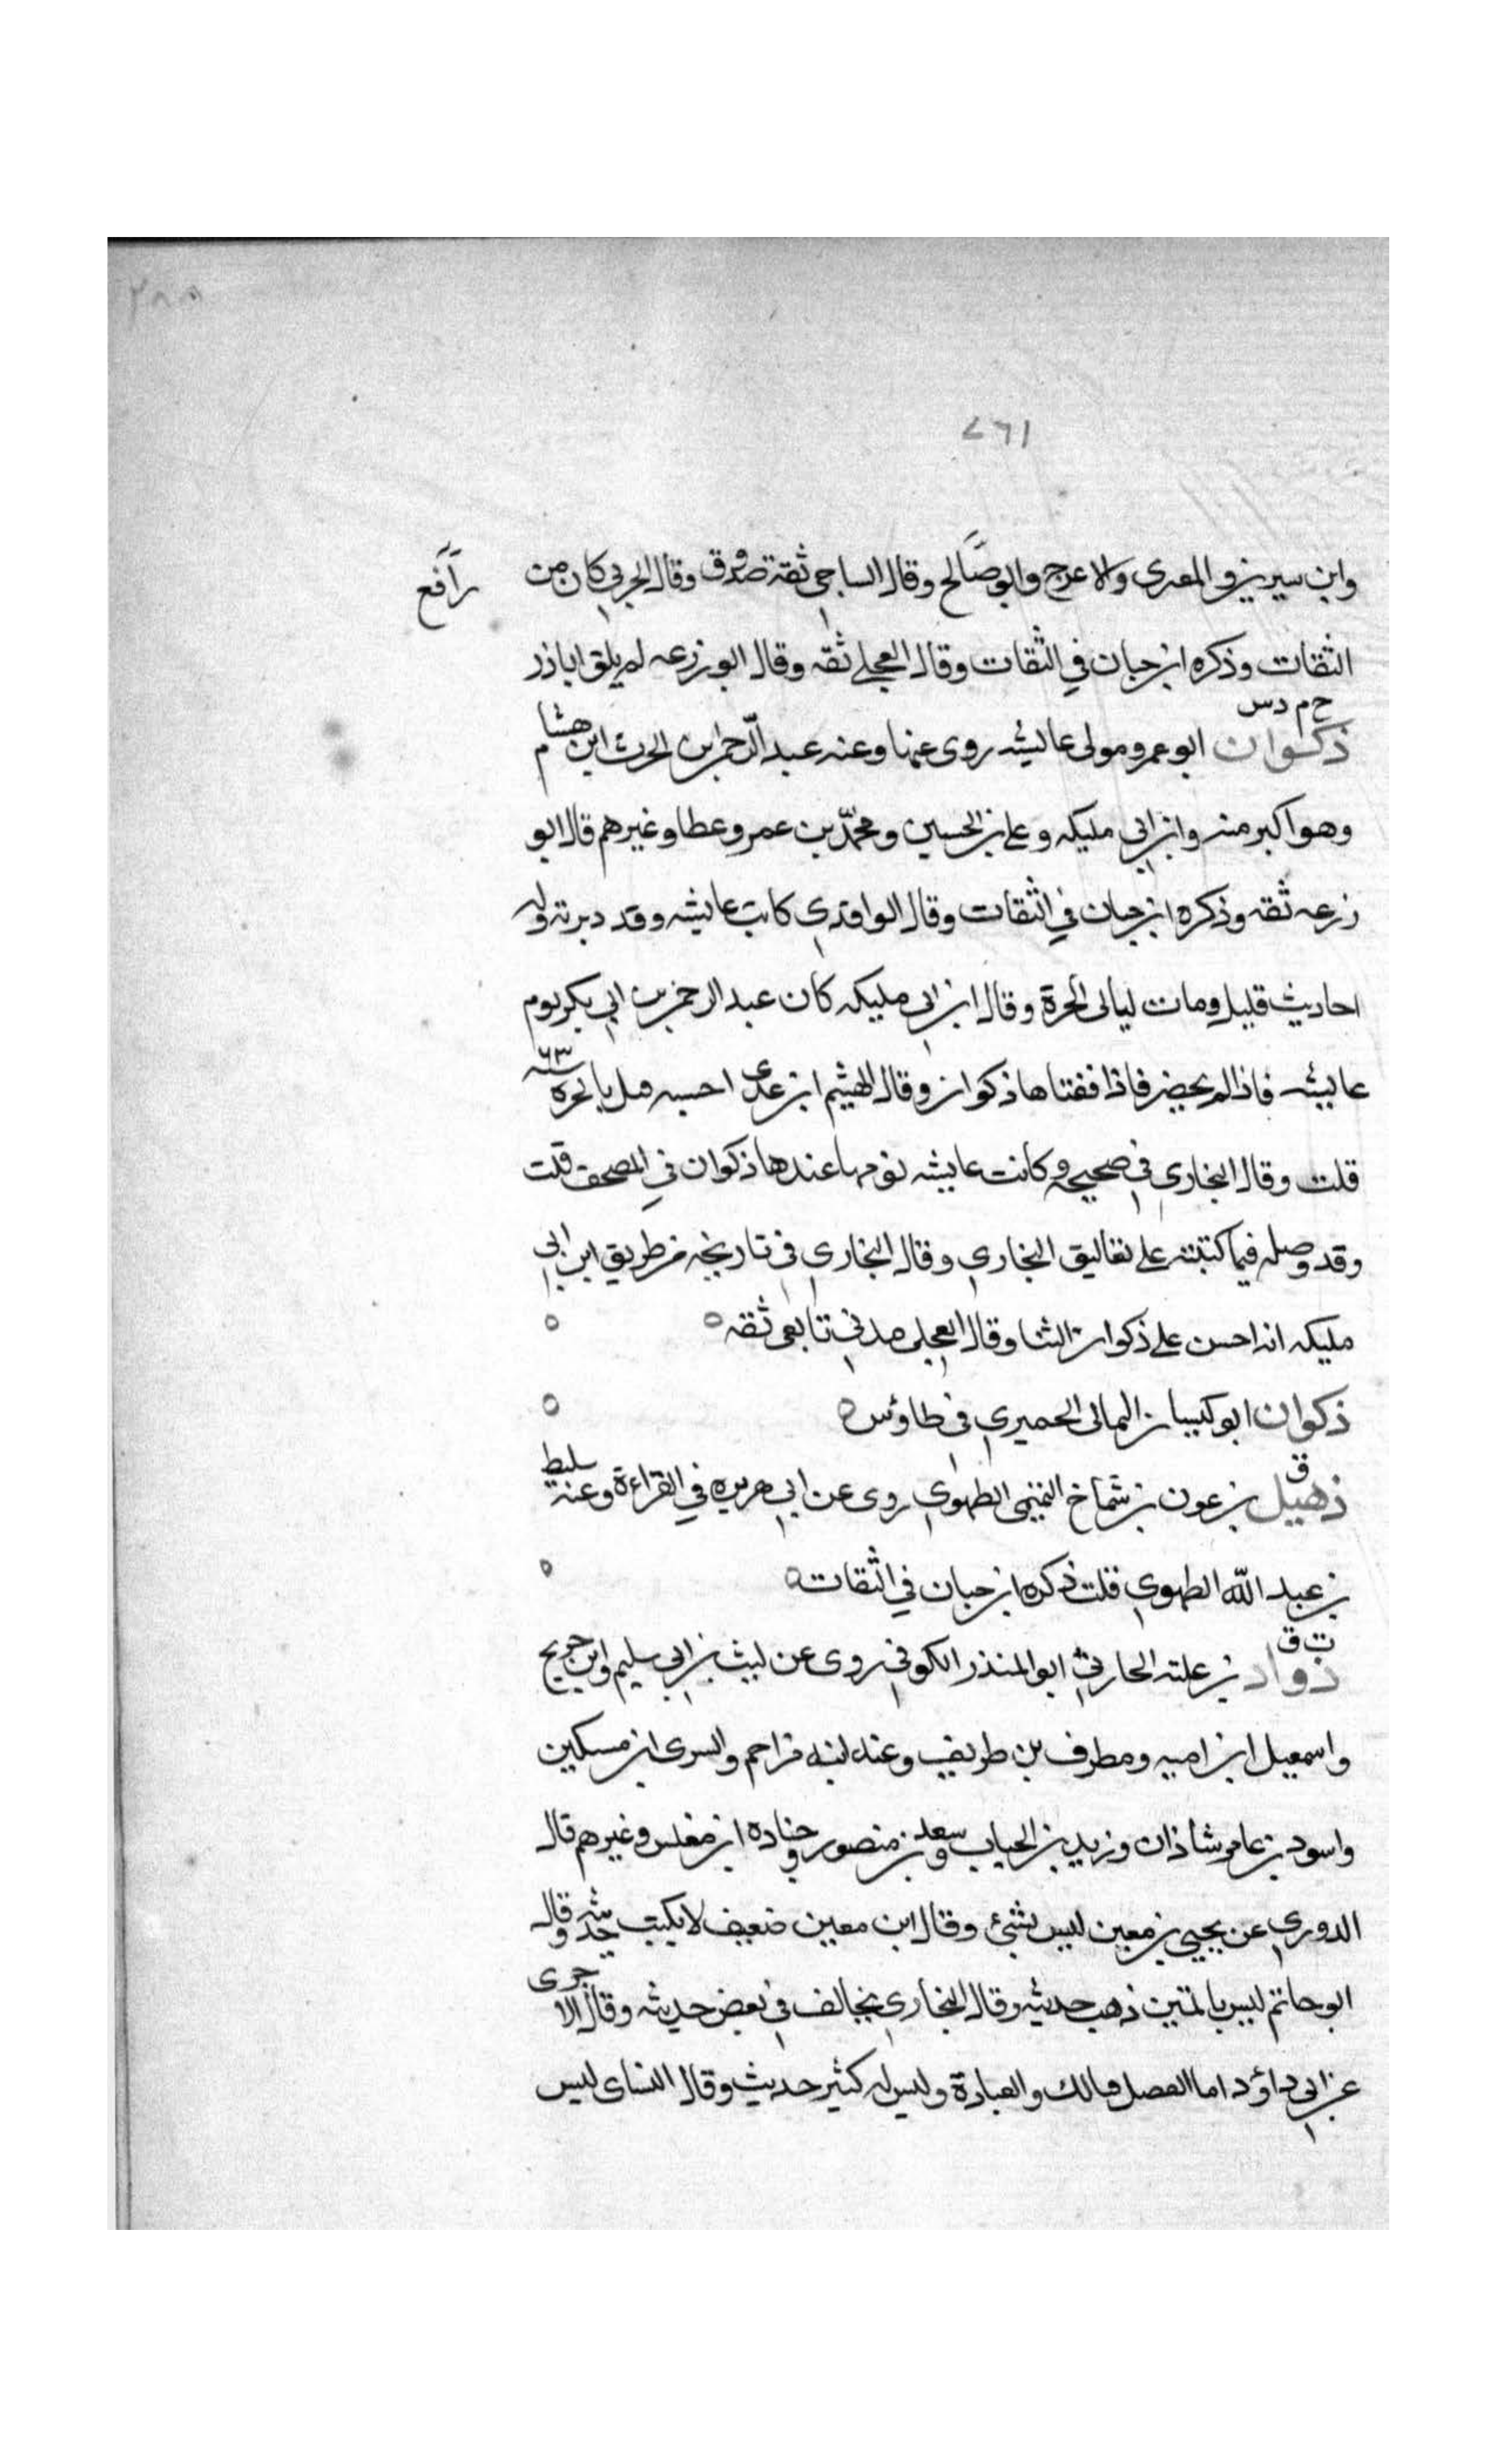 ٧٦١
وابن سيرين والمقبرى والاعرج وابو صالح وقال الساجي ثقة صدوق وقال الحربي كان من
رافع
الثقات وذكره ابن حبان في الثقات وقال العجلے ثقه وقال ابو زرعه لم يلق اباذر
خ م د س
ذكوان ابو عمرو مولى عايشه روى عنها وعنه عبد الرحمن ابن الحرث ابن هشام
وهو اكبر منه وابن ابي مليكه وعلے بن الحسين ومحمد بن عمرو عطا وغيرهم قال ابو
زرعه ثقه وذكره ابن حبان في الثقات وقال الواقدي كانت عايشه وقد دبرته وله
احاديث قليل ومات ليالى الحرة وقال ابن ابي مليكه كان عبد الرحمن بن ابي بكر يوم
عايشه فاذا لم يحضر فاذا ففتاها ذكوان وقال الهيثم ابن عدى احسبه قتل بالحره سنه ٦٣
قلت وقال البخاري في صحيحه وكانت عايشه يؤمها عندها ذكوان في المصحف قلت
وقد وصله فيما كتبته على تعاليق البخاري وقال البخاري في تاريخه من طريق ابن ابي
مليكه انه احسن علے ذكوان الثنا وقال العجلي مدني تابعي ثقه ه ه
ذكوان ابو كيسان اليمانى الحميري في طاوس ه ه
ق
ذهيل بن عون بن شماخ التميمى الطهوي روى عن ابي هريره في القراءة وعنه سليط
بن عبد الله الطهوي قلت ذكره ابن حبان في الثقات ه ه
ت ق
ذواد بن علبه الحارثي ابو المنذر الكوفي روى عن ليث بن ابي سليم وابن جريج
واسمعيل ابن اميه ومطرف بن طريف وعنه ابنه مزاحم والسرى ابن مسكين
واسود بن عامر شاذان وزيد بن الحباب وسعد بن منصور وجناده ابن مغلس وغيرهم قال
الدوري عن يحيى بن معين ليس بشئ وقال ابن معين ضعيف لا يكتب حديثه وقال
ابو حاتم ليس بالمتين ذهب حديثه وقال البخاري يخالف في بعض حديثه وقال الاجرى
عن ابي داؤد اما الفضل مالك والعبادة وليس له كثير حديث وقال النساى ليس